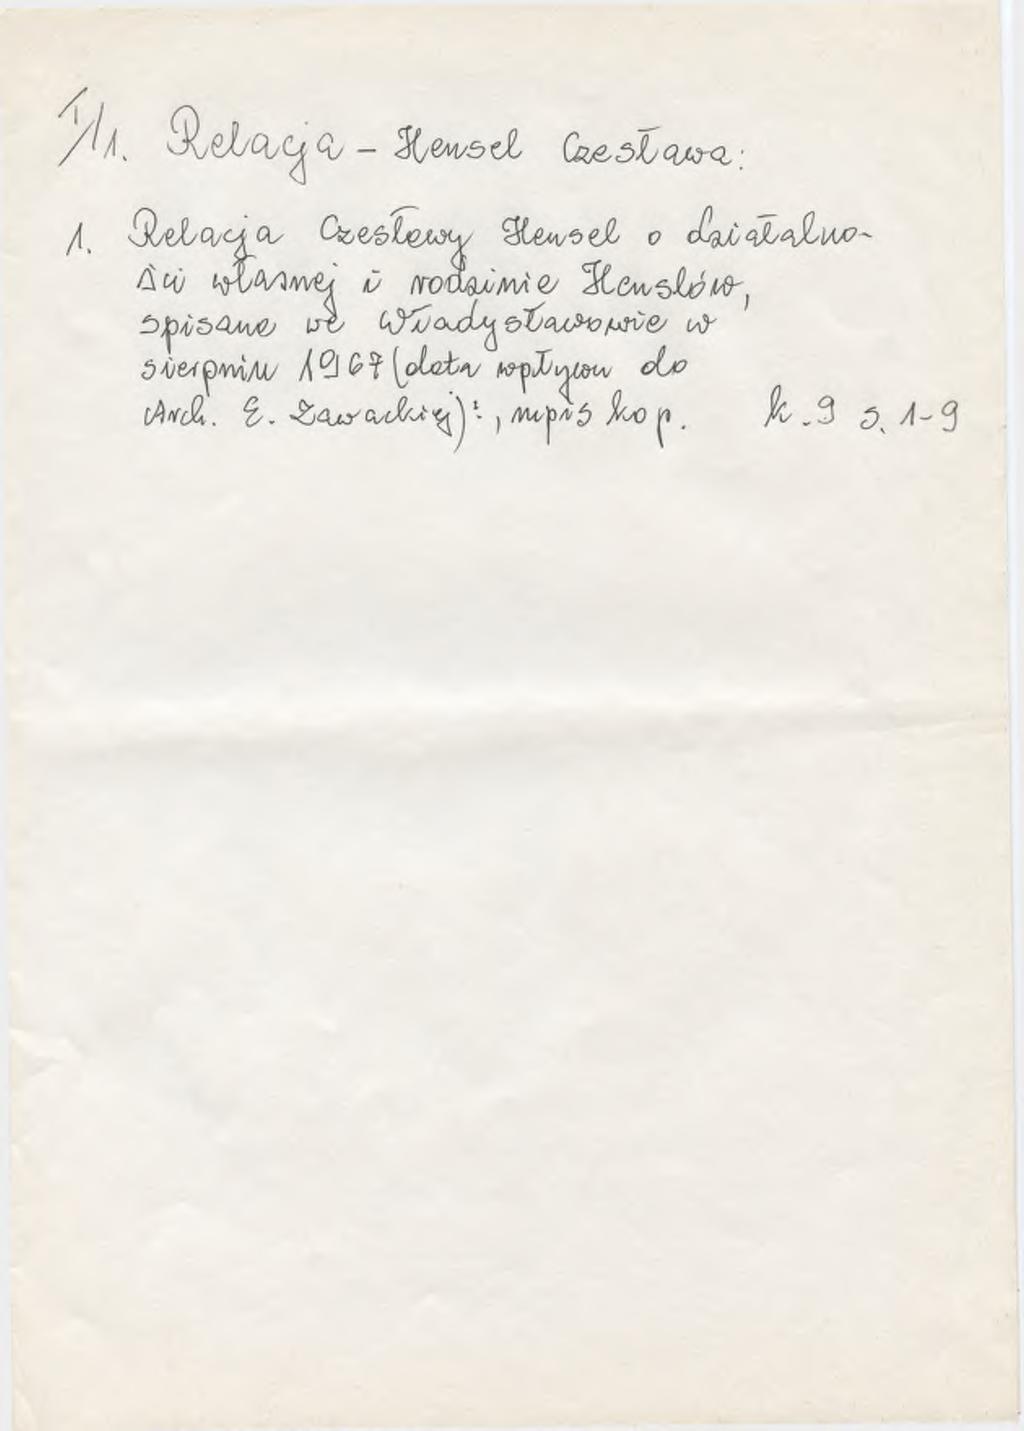 I/1. Relacja – Hensel Czesława:
1. Relacja Czesławy Hensel o działalno-
ści własnej i rodzinie Henslów,
spisane we Władysławowie w
sierpniu 1967 (data wpływu do
Arch. E. Zawackiej), mpis kop. k. 9 s. 1-9